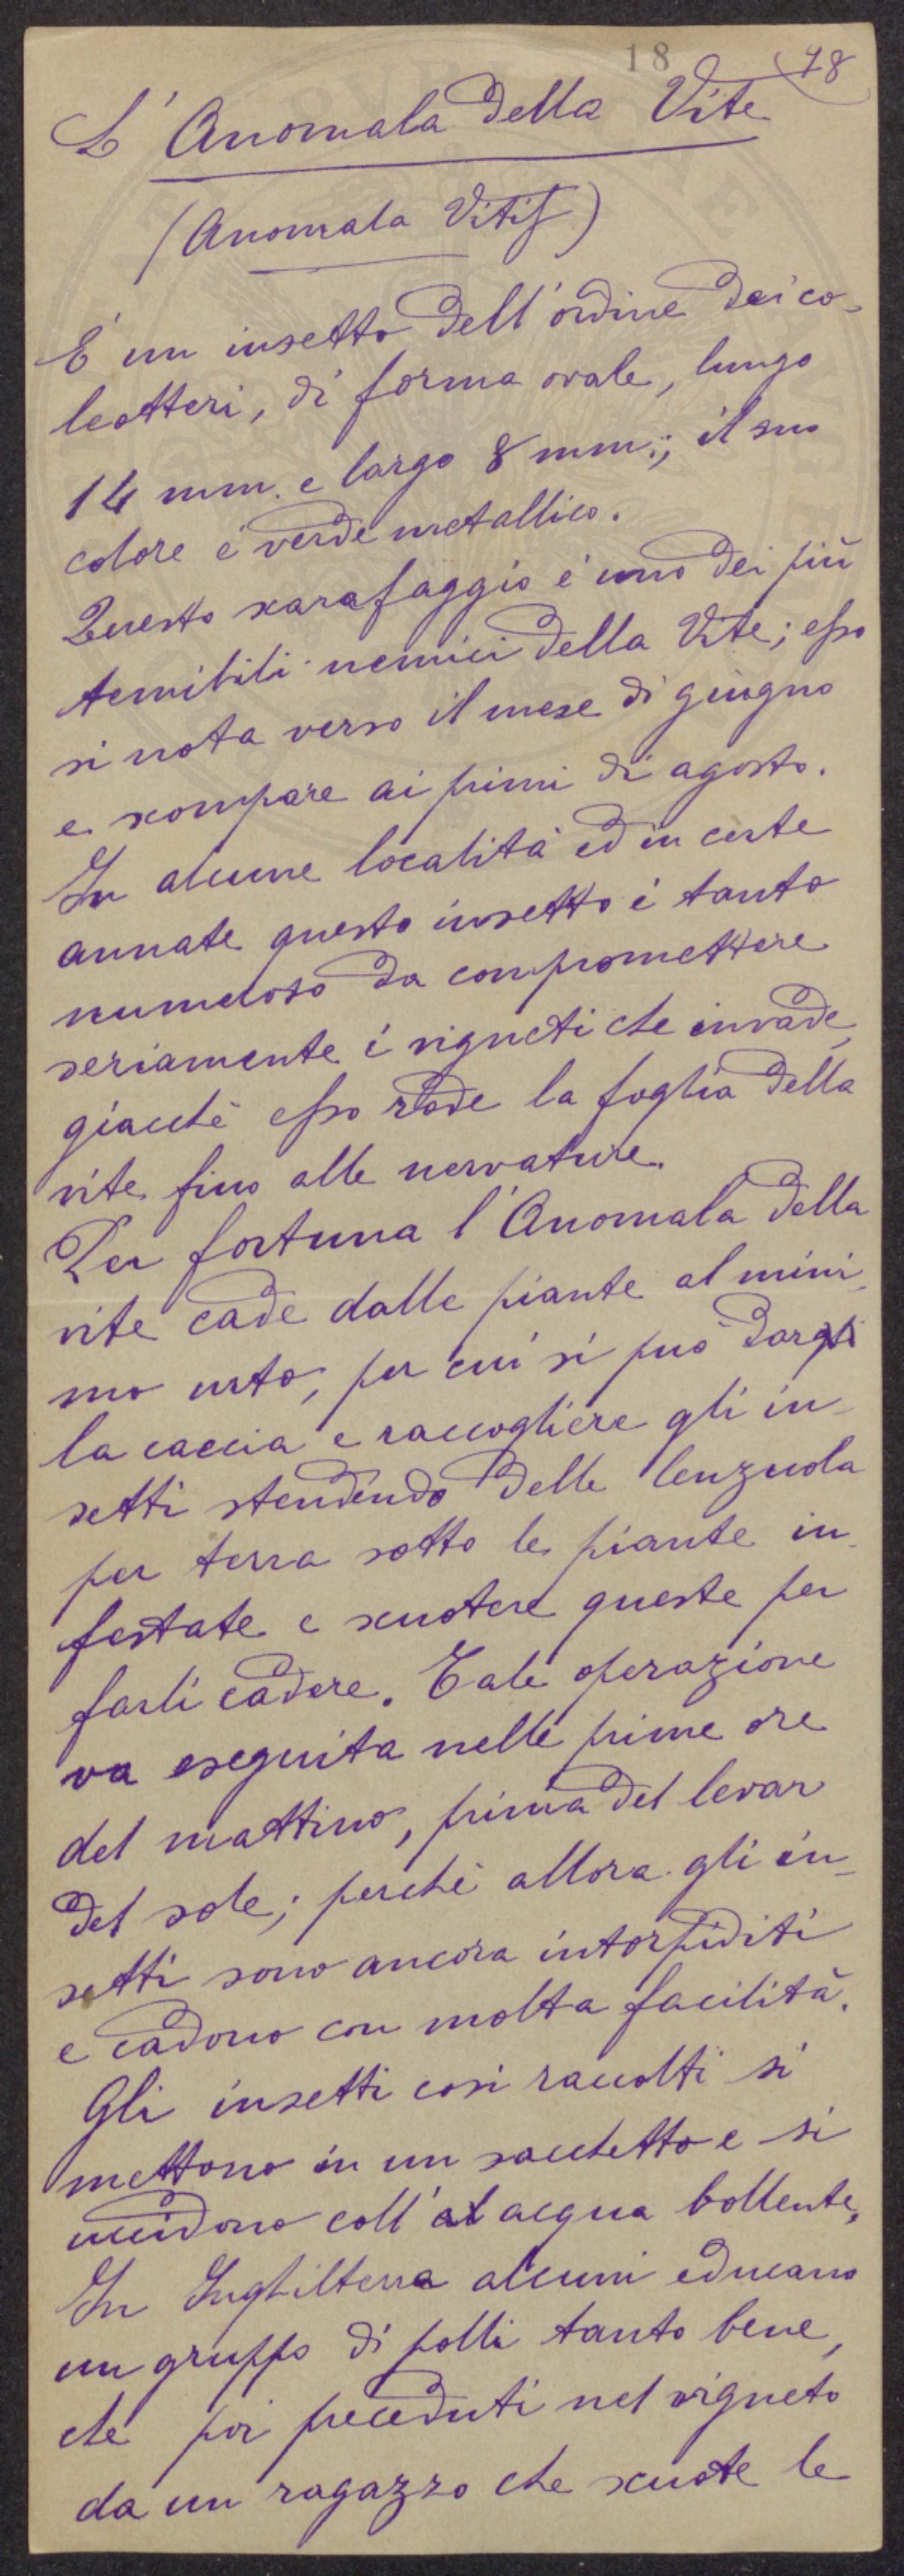 18 18
L'Anomala della Vite
(Anomala Vitis)
E' un insetto dell'ordine dei co-
leotteri, di forma ovale, lungo
14 mm. e largo 8 mm.; il suo
colore è verde metallico.
Questo scarafaggio è uno dei più
temibili nemici della Vite; esso
si nota verso il mese di giugno
e scompare ai primi di agosto.
In alcune località ed in certe
annate questo insetto è tanto
numeroso da compromettere
seriamente i vigneti che invade,
giacchè esso rode la foglia della
vite fino alle nervature.
Per fortuna l'Anomala della
vite cade dalle piante al mini-
mo urto, per cui si può dargli
la caccia e raccogliere gli in-
setti stendendo delle lenzuola
per terra sotto le piante in-
festate e scuotere queste per
farli cadere. Tale operazione
va eseguita nelle prime ore
del mattino, prima del levar
del sole; perchè allora gli in-
setti sono ancora intorpiditi
e cadono con molta facilità.
Gli insetti così raccolti si
mettono in un sacchetto e si
uccidono coll'acqua bollente.
In Inghilterra alcuni educano
un gruppo di polli tanto bene,
che poi preceduti nel vigneto
da un ragazzo che scuote le